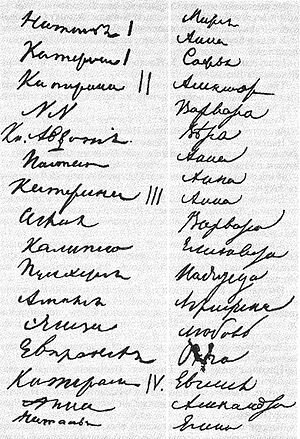 Наталья I
Катерина I
Катерина II
NN
Кн. Авдотія
Настасья
Катерина III
Аглая
Калипсо
Пулхерія
Амалія
Элиза
Евпраксея
Катерина IV.
Анна
Наталья
Марія
Анна
Софья
Александра
Варвара
Вѣра
Анна
Анна
Анна
Варвара
Елизавета
Надежда
Аграфена
Любовь
Ольга
Евгенія
Александра
Елена